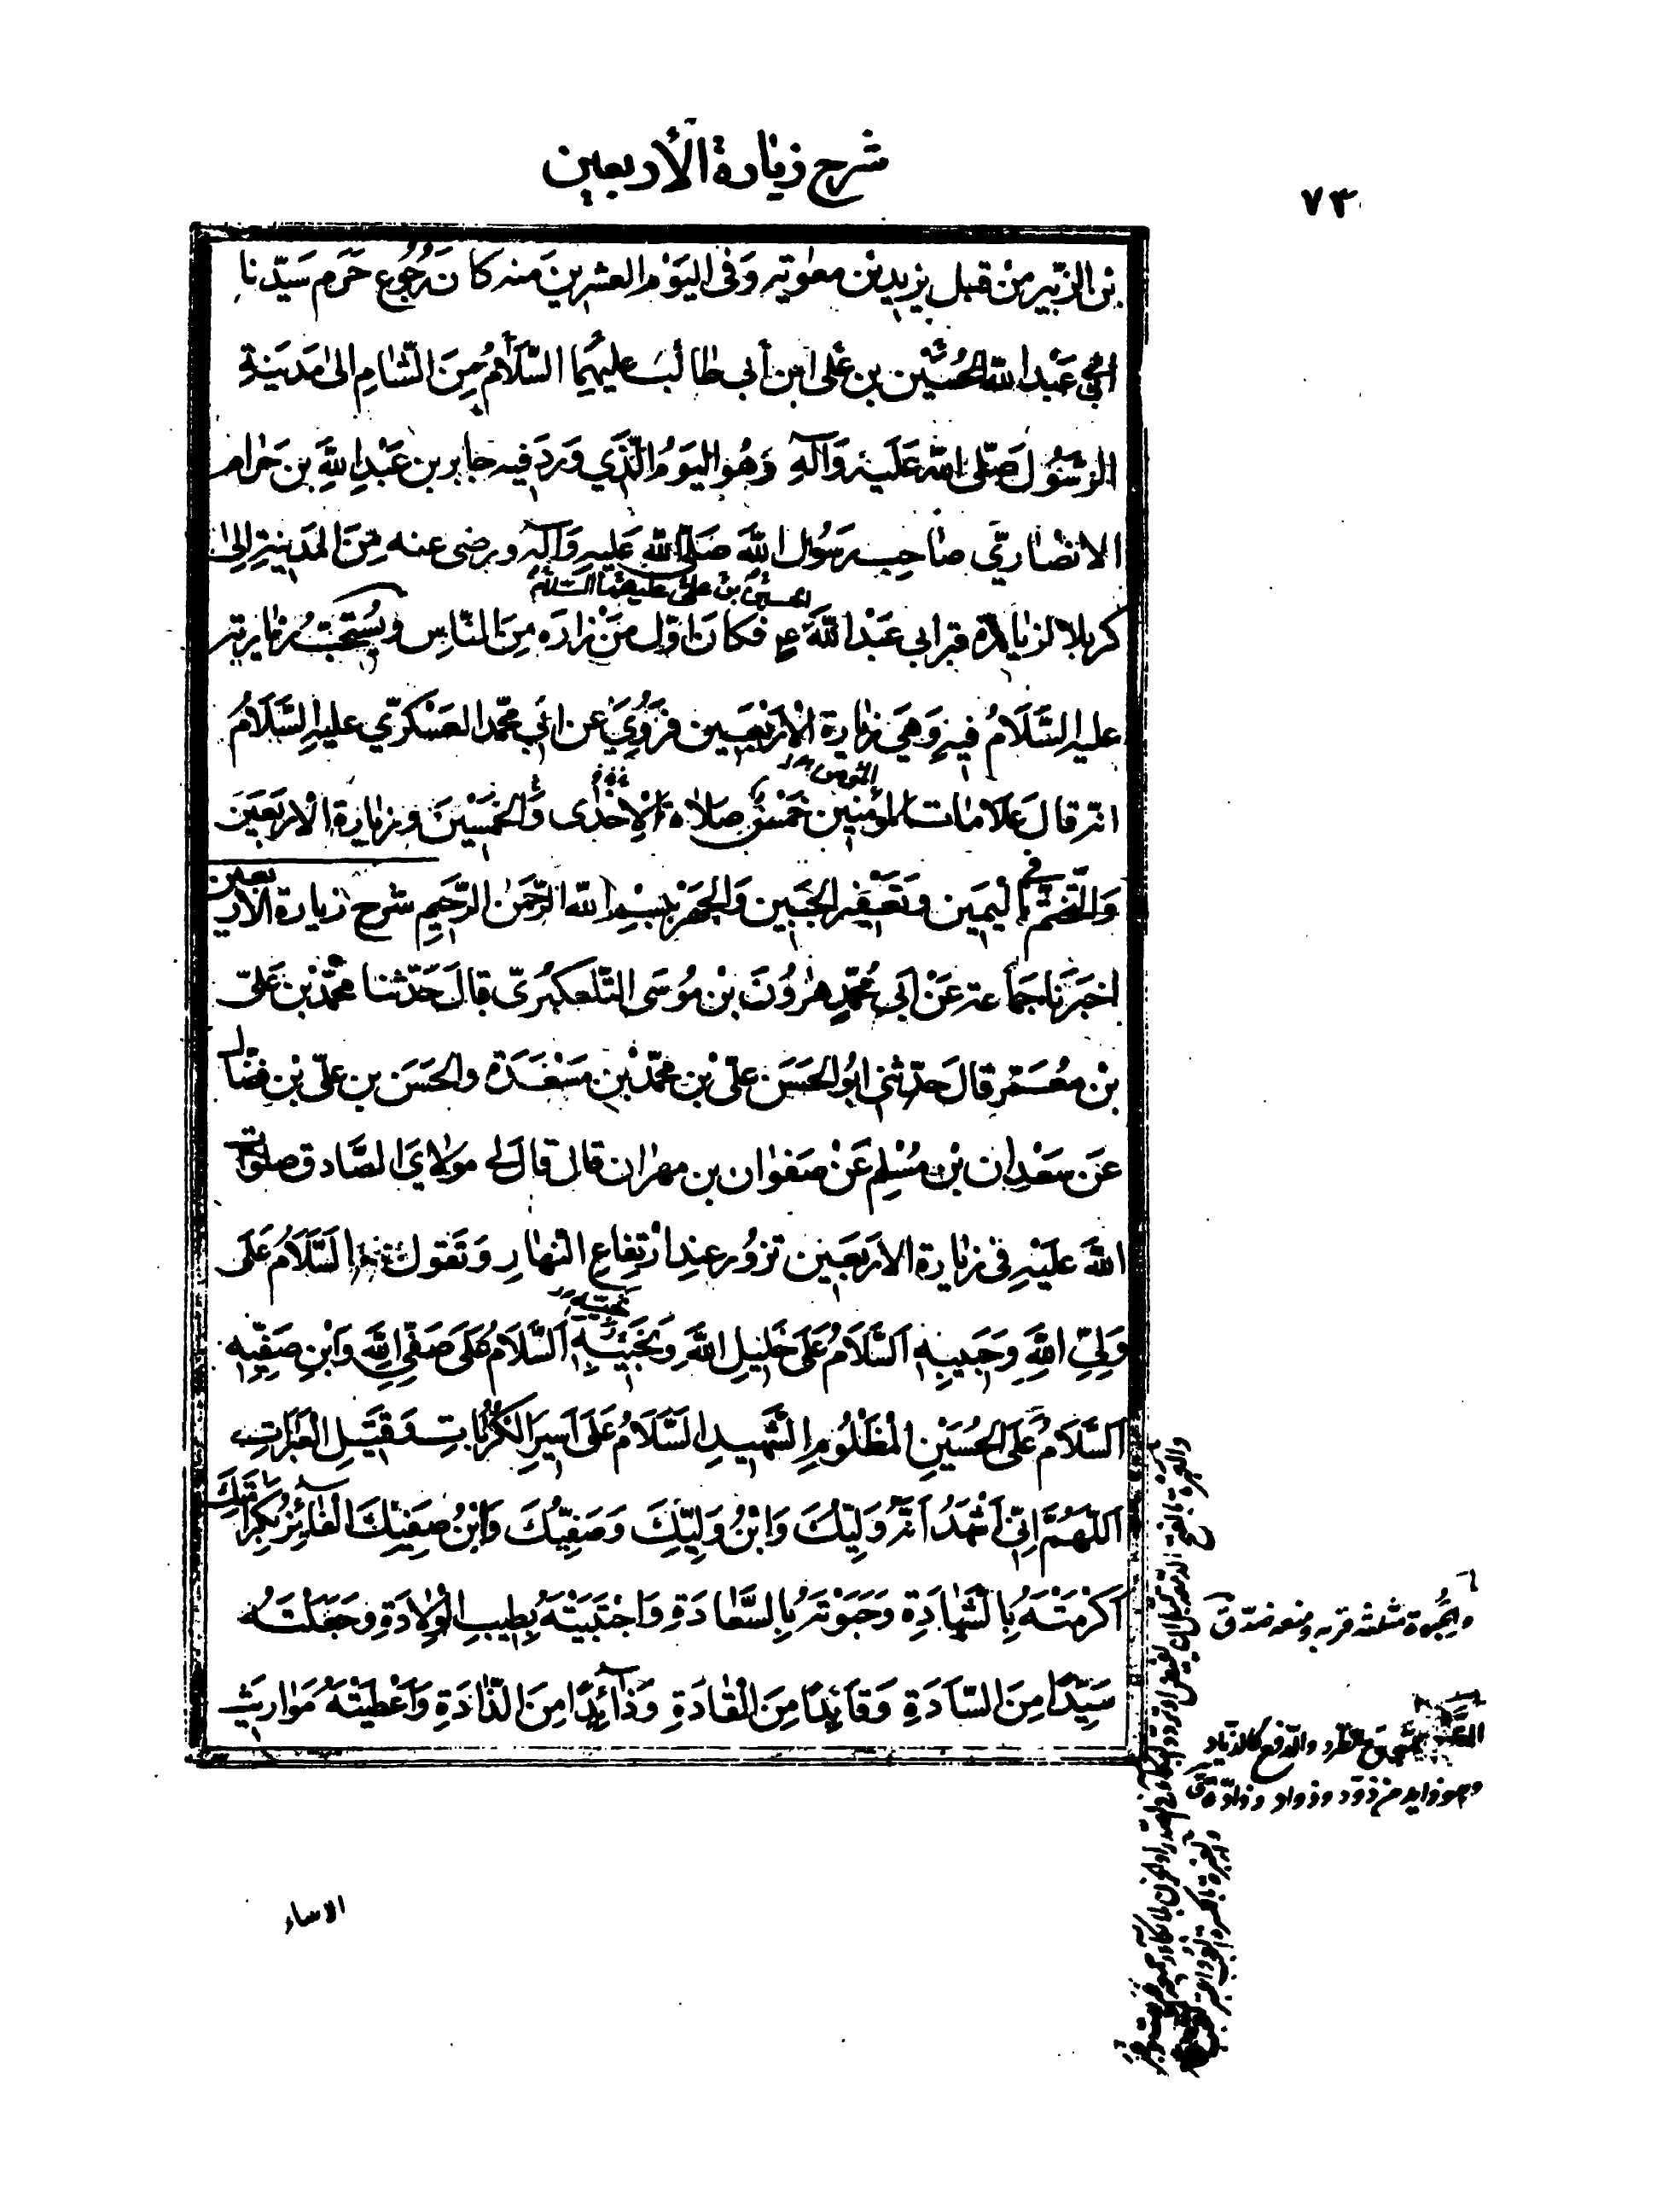 شرح زيارة الأربعين
٧٣
بْن الزّبير مِنْ قبل يزيد بْن معٰوية وَفى اليَوْم العشرينَ منه كانَ رُجُوع حَرَم سَيّدنا
ابي عَبْد الله الحُسَين بن عَلى ابن أبى طالب عليهما السَّلَامُ مِنَ الشّام الىٰ مَدينَةِ
الرّسُول صَلّى الله عَلَيه وَآلهِ وَهُو اليَومُ الّذي وَرَدَ فيه جابر بن عَبْدِ اللهِ بن حَرام
الانصاريّ صاحِب رَسُول اللهَ صَلّى الله عَليهِ وَآلهِ ورضى عنه مِنَ المَدينةِ إلىٰ
الحسين بن على عليهما السّلام
كربلا لزيارة قبر ابى عَبْد اللهَ ع فكانَ اوّل مَنْ زاره مِنَ النّاسِ ويُسْتَحَبُّ زيارته
عليه السَّلَامُ فيهِ وَهيَ زيارة الاَرْبَعين فرُوِيَ عن ابي محمّد العَسْكريّ عليهِ السَّلَامُ
المؤمن
انّه قالَ عَلَامات المؤمنين خَمْسٌ صلاة الاِحْدٰى وَالخَمْسِينَ وزيارة الاَربَعينَ
فى
وَالتّخَتّم بِاليَمين وَتَعْفير الجَبين وَالجَهْر بِسْمِ الله الرّحمٰن الرّحيمِ شرح زيارة الاربعين
اخبَرنا جَماعة عَنْ ابى مُحَمّدٍ هٰرُونَ بن مُوسَى التّلعكبُرىّ قالَ حَدّثنا محمّد بْن عَلىّ
بْن معْمَر قالَ حَدّثنى ابُو الحَسَن علىّ بْن محمّد بْن مَسْعَدَة والحَسَن بن علىّ بن فضّال
عَن سَعْدان بْن مُسْلِم عَنْ صَفوان بن مهران قال قالَ لي مَولايَ الصّادق صلوات
اللهَ عَلَيْهِ فى زيارة الاَربَعين تزُور عند ارْتِفاع النّهار وَتَقول السَّلَامُ عَلَى
نجيبه
وَلِيِّ اللهِ وَحَبيبِهِ اَلسَّلَامُ عَلىٰ خَليلِ اللهِ وَنَجيبِهِ اَلسَّلَامُ عَلىٰ صَفِيِّ اللهِ وَابْنِ صَفِيِّهِ
اَلسَّلَامُ عَلَى الحُسَيْنِ المَظْلُومِ الشَّهيدِ السَّلَامُ عَلىٰ اَسيرِ الكُرُباتِ وَقَتيلِ العَبَراتِ
اَللّهُمَّ اِنّى اَشْهَدُ اَنَّهُ وَلِيُّكَ وَابْنُ وَلِيِّكَ وَصَفِيُّكَ وَابْنُ صَفِيِّكَ الْفائِزُ بِكَرامَتِكَ
اَكْرَمْتَهُ بِالشَّهادَةِ وَحَبَوْتَهُ بِالسَّعادَةِ وَاجْتَبَيْتَهُ بِطيبِ الْوِلادَةِ وَجَعَلْتَهُ
سَيِّدًا مِنَ السّادَةِ وَقائِدًا مِنَ الْقادَةِ وَذائِدًا مِنَ الذّادَةِ وَاَعْطَيْتَهُ مَواريثَ
والحبوة مثلثة
والدفع كالذياد
وهو ذايد من ذوّد وذواد وذادة ق
الاساء